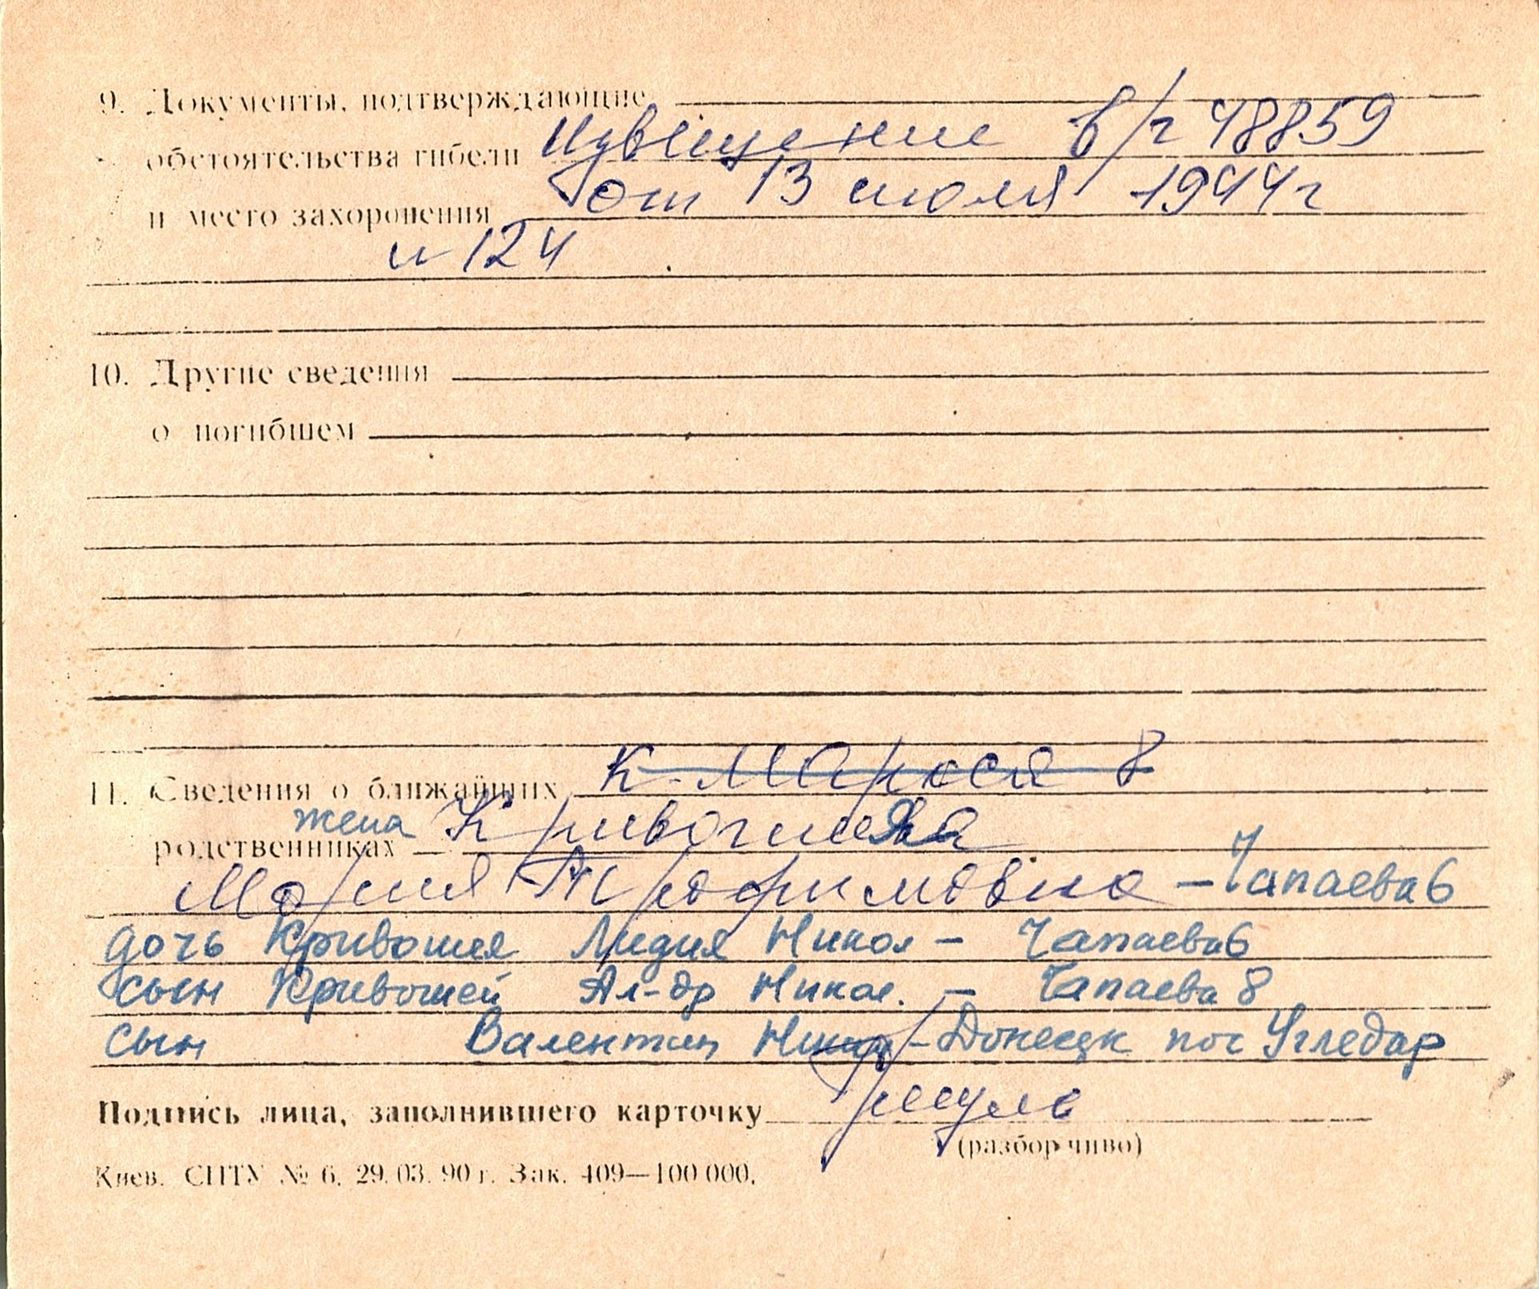 9. Документы, подтверждающие
обстоятельства гибели Извещение в/ч 48859
и место захоронения от 13 июля 1944 г
и 124
10. Другие сведения
о погибшем
11. Сведения о ближайших К-Маркса 8
родственниках жена Кривошея
Мария Трофимовна - Чапаева 6
дочь Кривошея Лидия Никол - Чапаева 6
сын Кривошей Ал-др Никол. - Чапаева 8
сын Валентин - Донецк пос Угледар
Подпись лица, заполнившего карточку
(разборчиво)
Киев. СПТУ № 6. 29.03.90 г. Зак. 409—100 000.